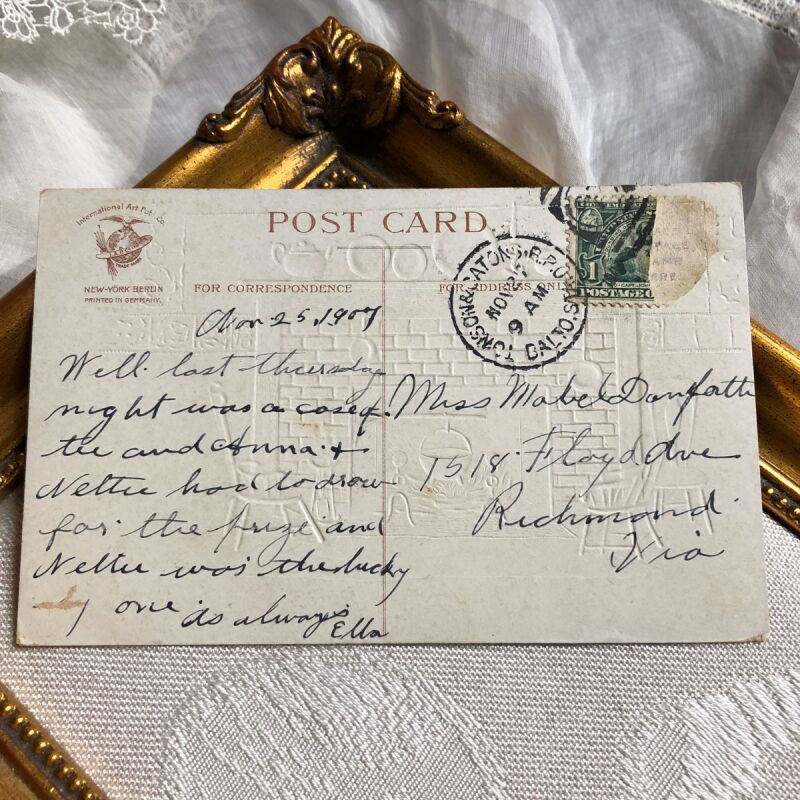 International Art Pub. Co.
TRADE MARK
NEW-YORK BERLIN
PRINTED IN GERMANY.
POST CARD
FOR CORRESPONDENCE
FOR ADDRESS ONLY
TOWSON & CATONS. R.P.O.
NOV 27
9 AM
BALTO.
1
POSTAGE
Nov 25 1907
Well last thursday
night was a case of
tie and Anna &
Nettie had to draw
for the prize and
Nettie was the lucky
one as always
Ella
Miss Mabel Danforth
1518 Floyd Ave
Richmond
Via